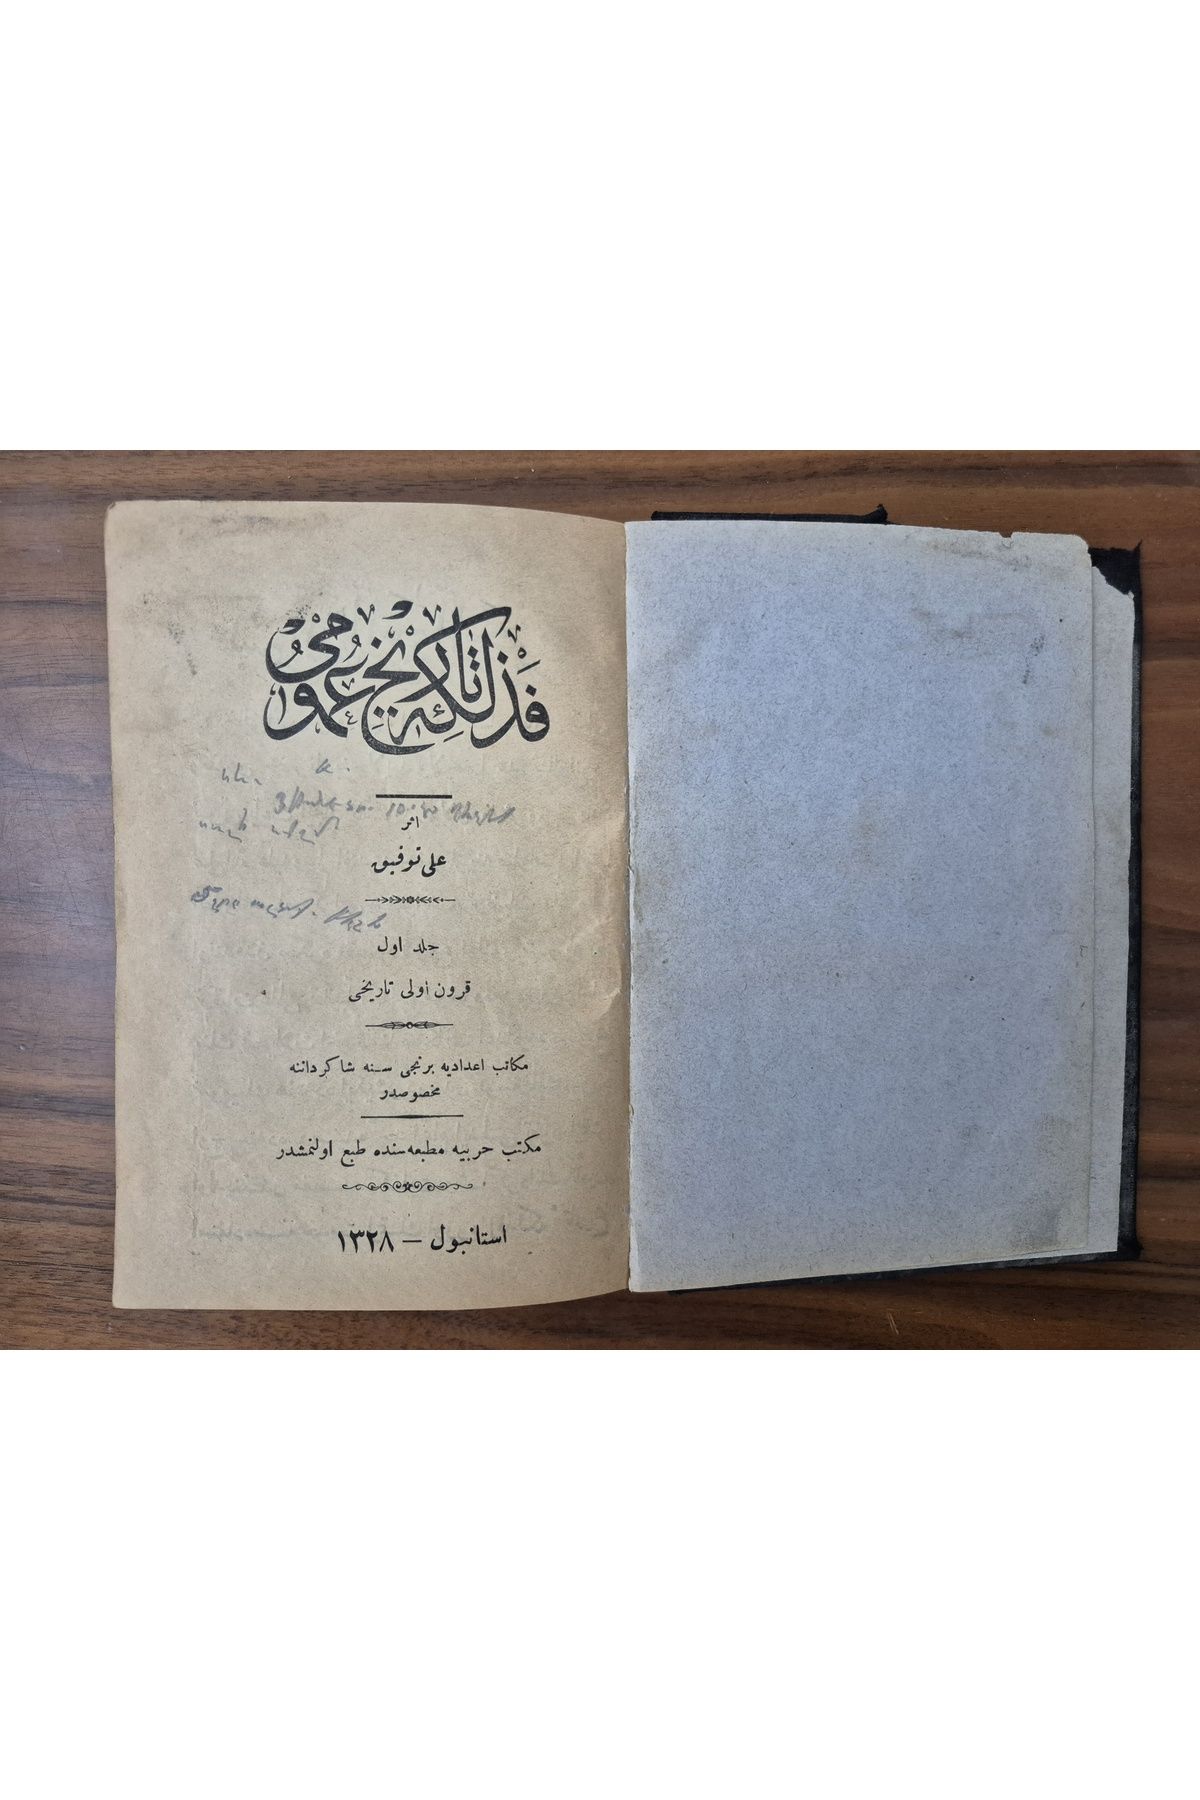 فذلكۀ تاريخ عمومى
اثر
على توفيق
جلد اول
قرون اولى تاريخى
مكاتب اعداديه برنجى سنه شاكرداننه
مخصوصدر
مكتب حربيه مطبعه‌سنده طبع اولنمشدر
استانبول — ١٣٢٨